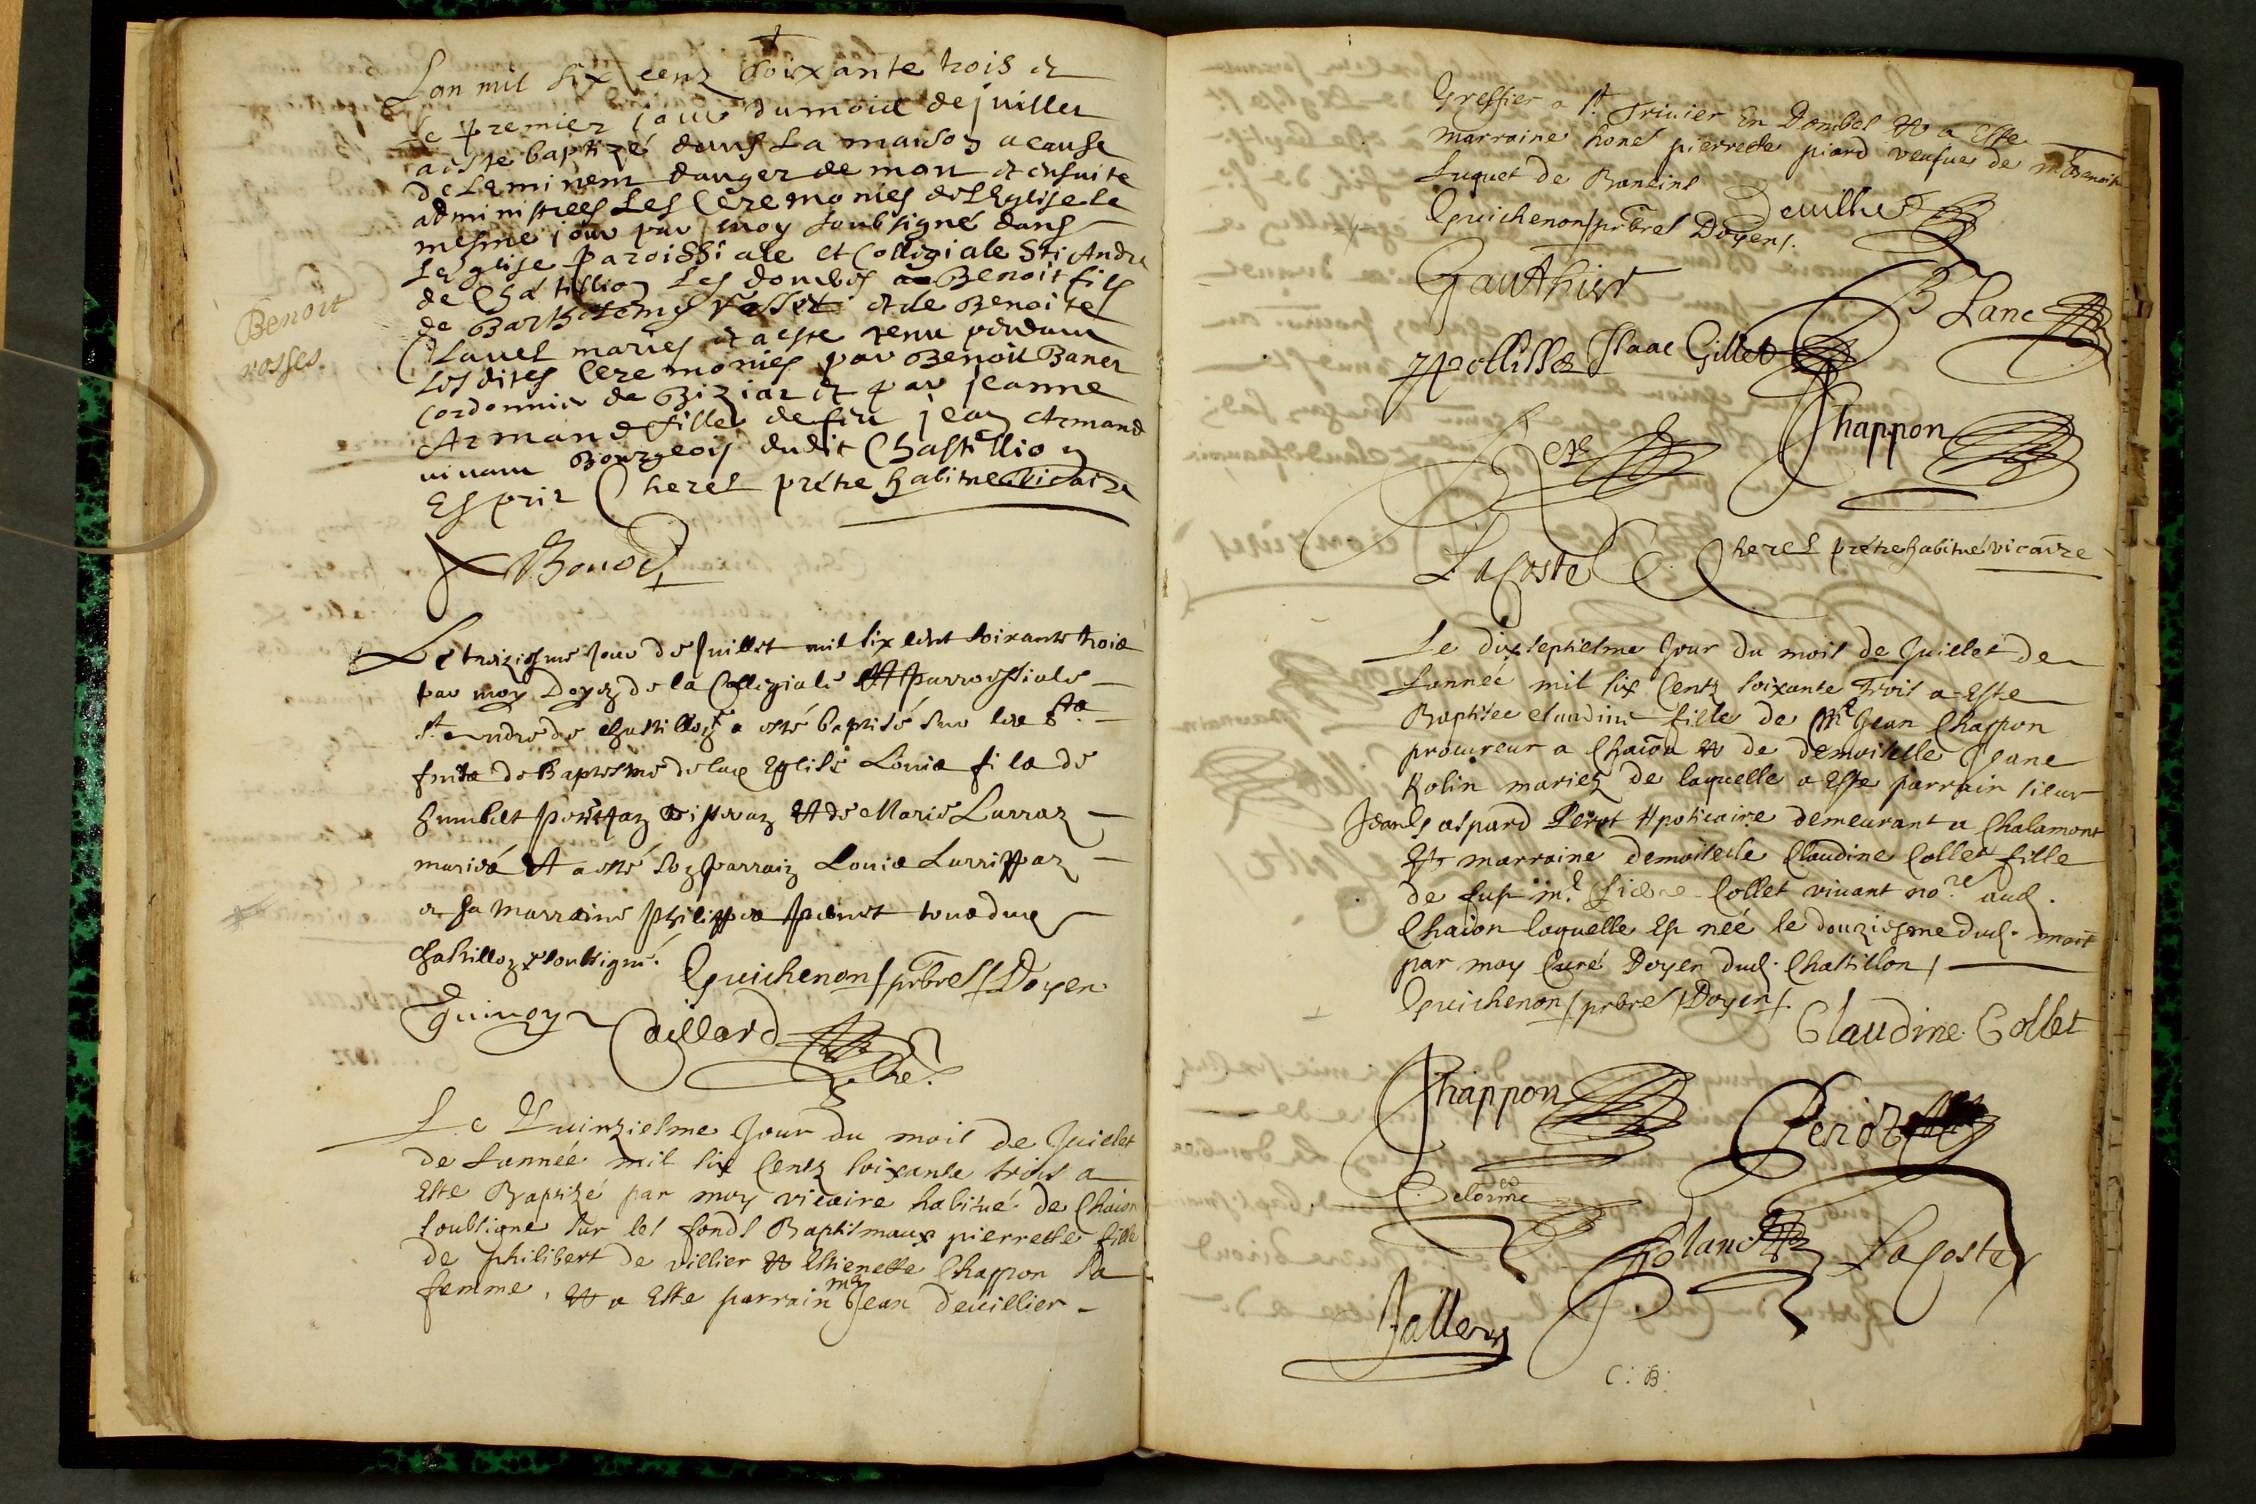 Lan mil six cenz soixante trois et
le premier jour du moid de juillet
a este baptizé dans La maison a cause
de Leminent danger de mort et ensuite
administrees Les Ceremonies de LEglise le
mesme jour par moy soubsigné dans
LeGlise Paroissiale et Collegiale Sti Andre
de Chátillion Les dombes Benoit fils
de Barthelemy Vosses et de Benoite
Clauel mariés et a este tenu pendant
Lesdites Ceremonies par Benoit Baner
Cordonnier de Biziat et par jeanne
Armand fille de feu jean Armand
vivant Bourgeois dudit Chastillion
Esprit Cherel prétre habitué vicaire
Benoit
vosses.
Benoit
Le treiziesme Jour de Juillet mil six cent soixante trois
par moy Doyen de la Collegiale Et parroessiale
St Andre de chastillon a esté baptisé sur les
de Baptesme de lad Eglise Louis fils de
humbert tisseran Et de Marie Larraz
mariés Et a esté son parrain Louis
et sa marraine philippe tous dud
chastillon soubsigné.
Guichenon prbre Doyen
Guinoy Caillard
Le Quinziesme Jour du mois de Juielet
de Lannéé mil six Centz soixante trois a
Este Baptizé par moy vicaire habitué de Chaion
soubsigne sur les fonds Baptismaux pierrette fille
de philibert de villier et Estienette Chappon sa
femme, et a Este parrain me Jean devillier
Greffier a St. Trivier En Dombes et a Este
marraine hones pierrette piard veufue de me Benoit
Luquet de Baneins
Devillier
Guichenon prbre Doyen.
Gauthier
B Lanc
Isaac Gillet
Chappon
Lacoste Cherel prétre habitué vicaire
Le dix septiesme Jour du mois de Juielet de
Lannéé mil six Centz soixante Trois a Este
Baptisee claudine fille de Me Jean Chappon
procureur a Chaion et de demoiselle Jeane
Rolin mariez de laquelle a Este parrain sieur
Jean Gaspard Perot Apoticaire demeurant a Chalamont
Et marraine demoiselle Claudine Collet fille
de fut me. Collet vivant nore aud.
Chaion laquelle Est néé le douziesme dud. mois
par moy Curé Doyen dud. Chastillon
Guichenon prbre Doyen.
Claudine Collet
Chappon
Perot
Delorme
Blanc
Lacoste
Jallery
C: B: